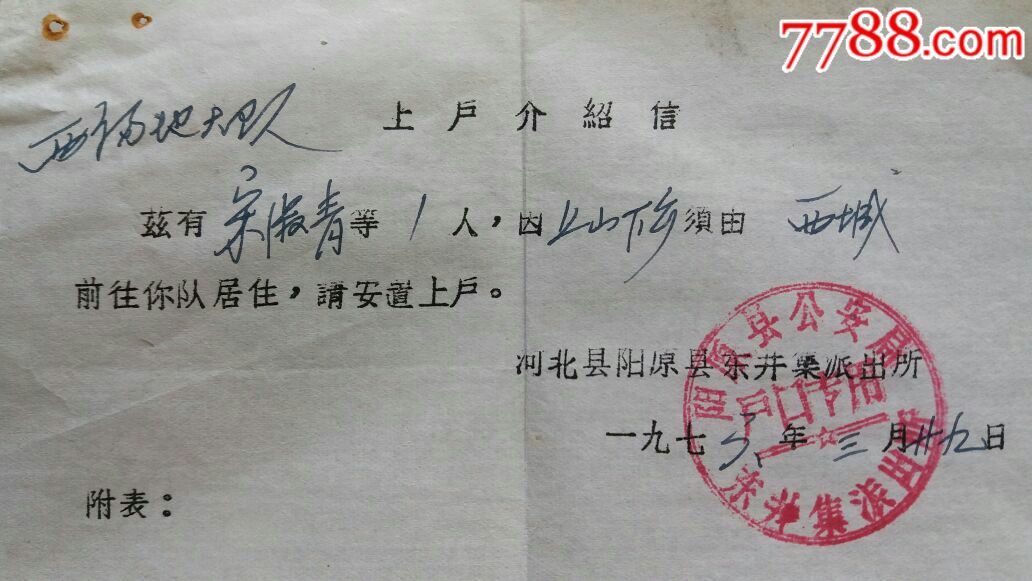 7788.com
上戶介紹信
西福地大队
茲有宋淑青等1人，因上山下乡須由西城
前往你队居住，請安置上戶。
河北县阳原县东井集派出所
一九七年三月廿九日
阳原县公安局
戶口专用
东井集派出所
附表：